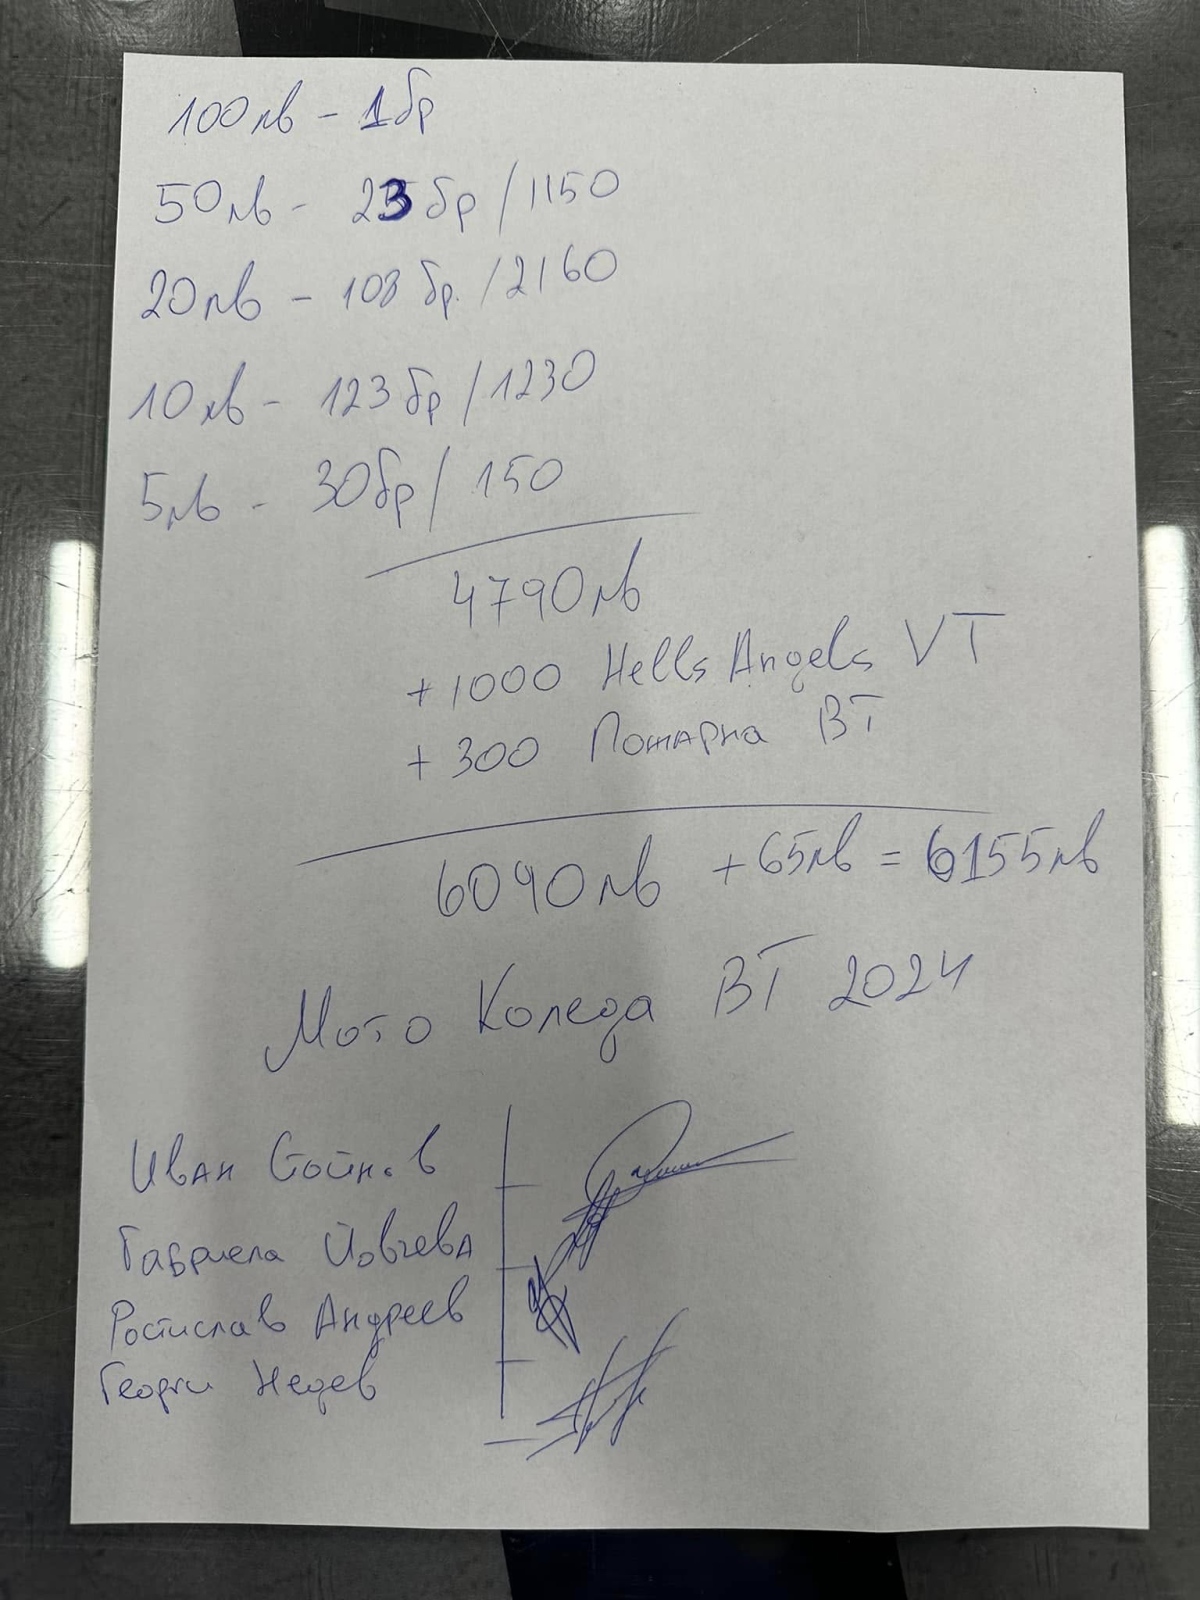 100лв - 1бр
50лв - 23бр /1150
20лв - 108бр. /2160
10лв - 123бр /1230
5лв - 30бр / 150
4790лв
+1000 Hells Angels VT
+300 Пожарна ВТ
6090лв +65лв = 6155лв
Мото Коледа ВТ 2024
Иван Стойнов
Габриела Йовчева
Ростислав Андреев
Георги Недев